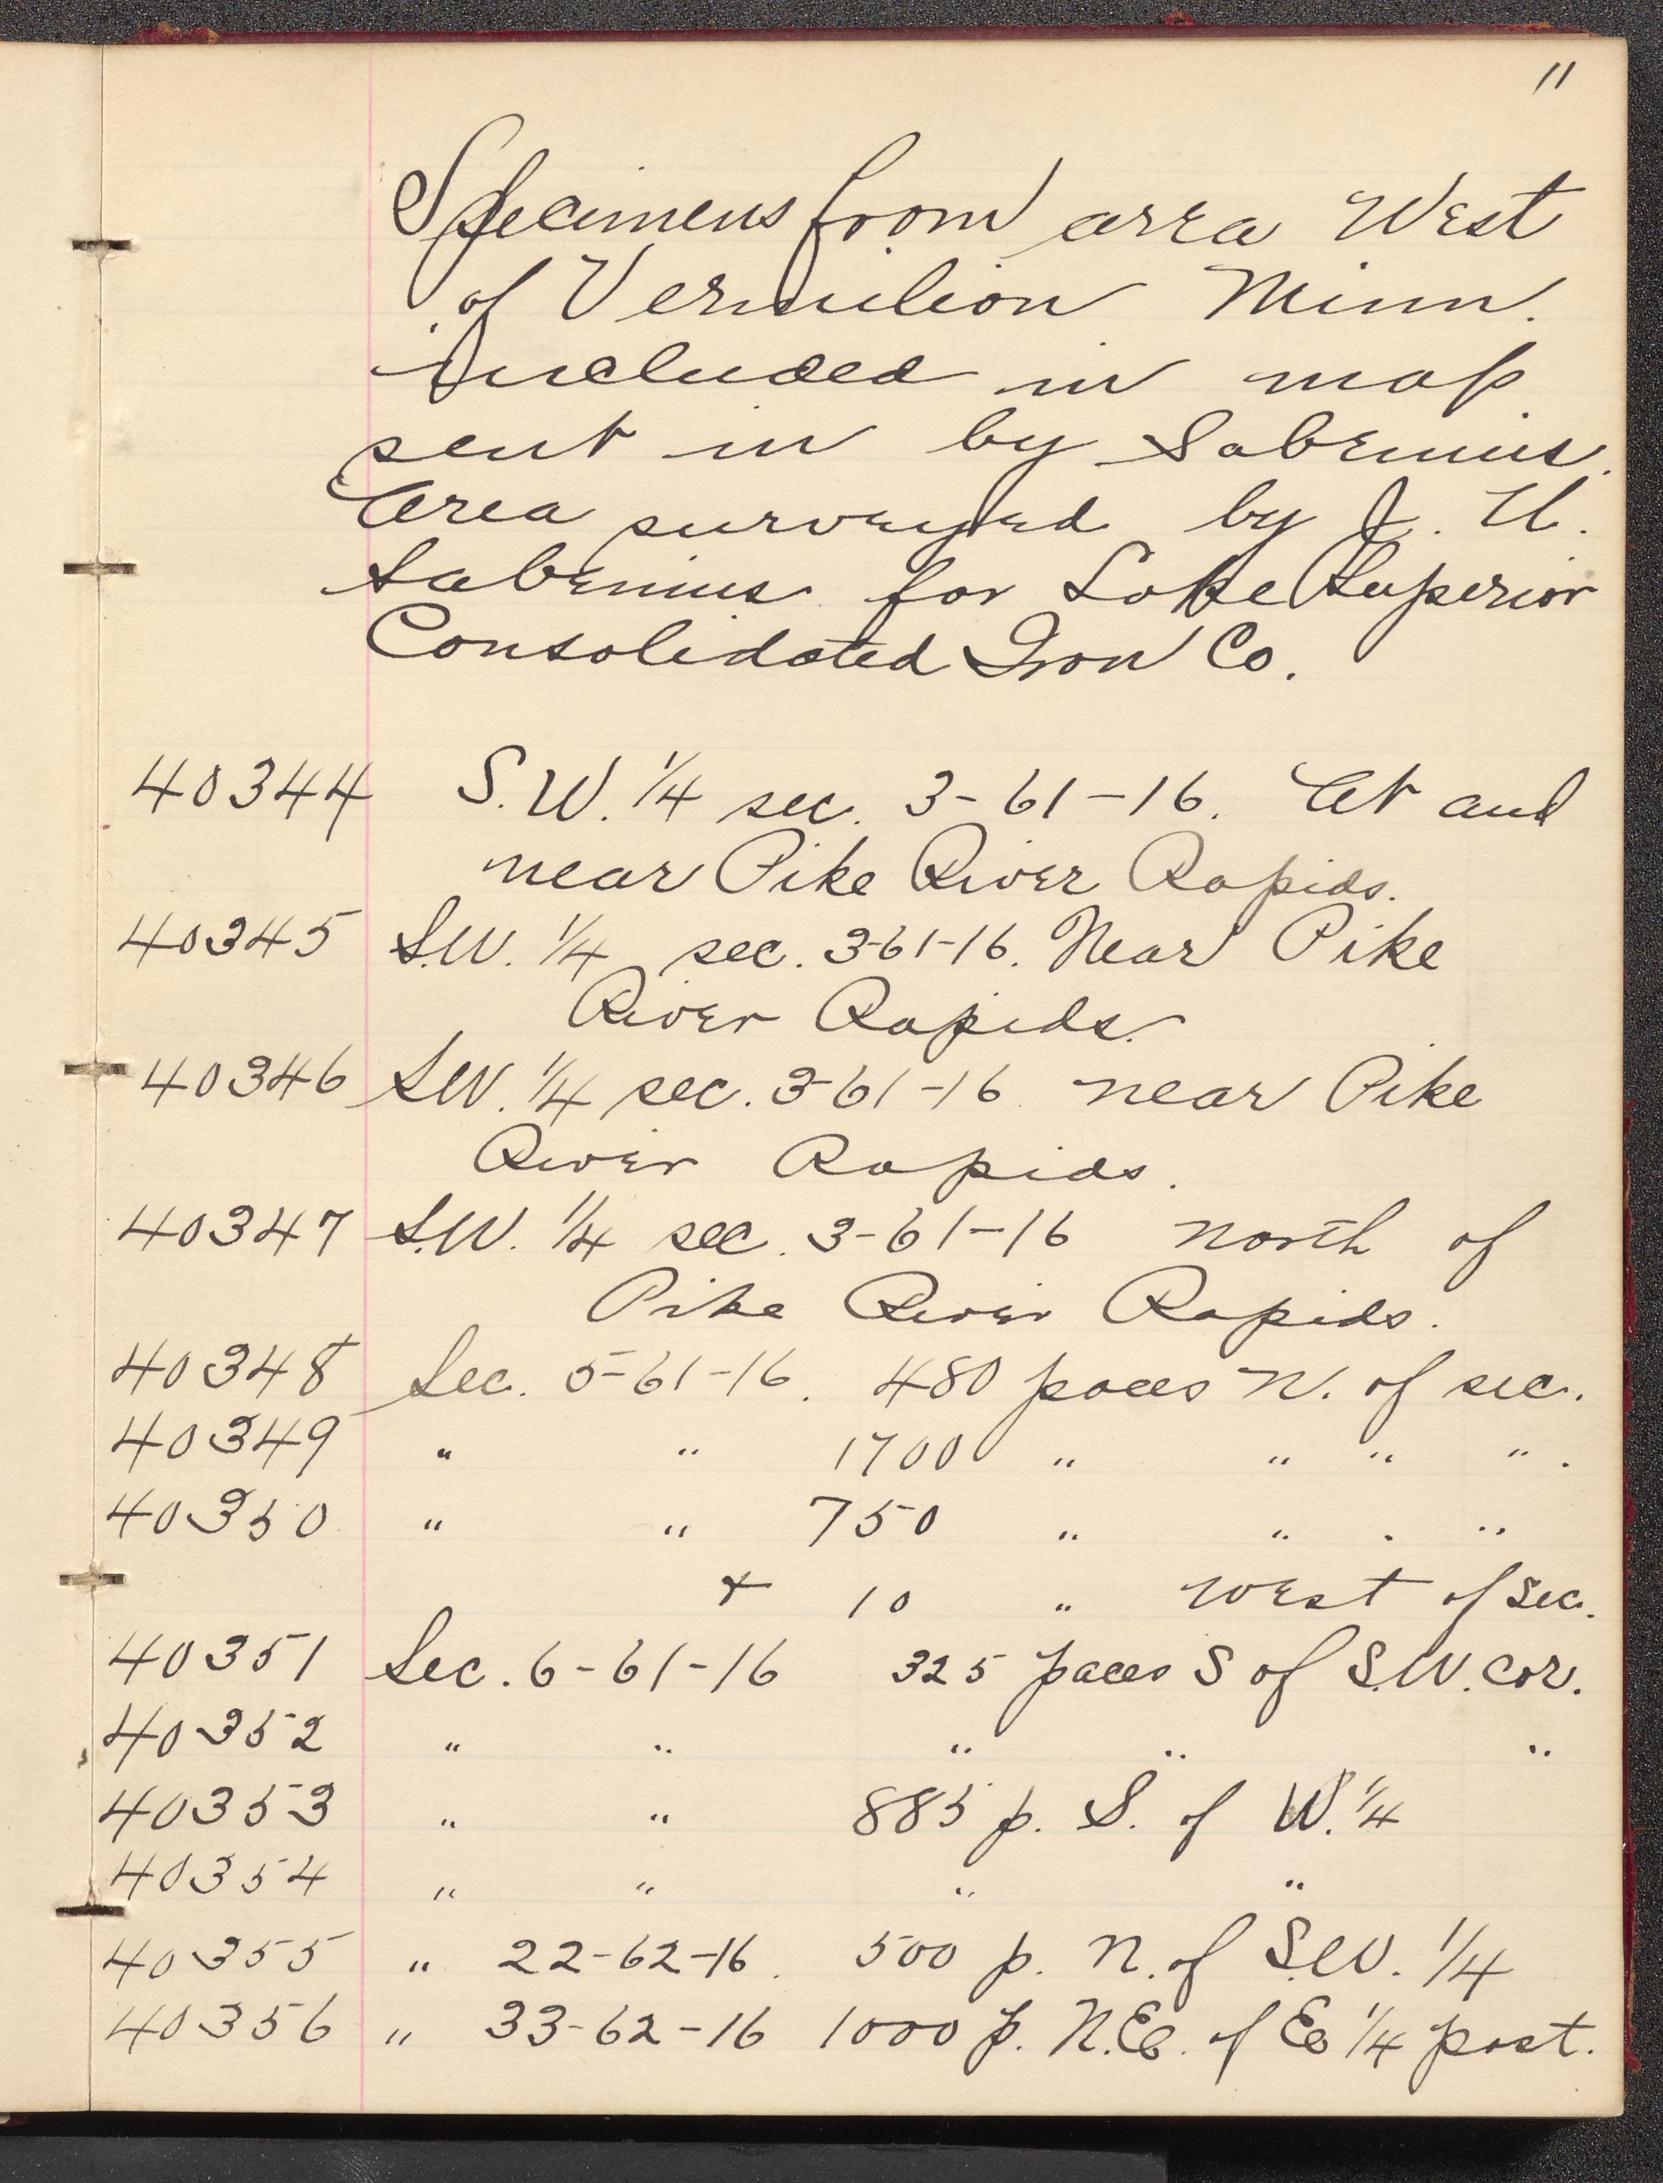 11
Specimens from area West
of Vermilion Minn.
included in map
sent in by Sebenius.
Area surveyed by J. U.
Sebenius for Lake Superior
Consolidated Iron Co.
40344 S.W. 1/4 sec. 3-61-16. At and
near Pike River Rapids.
40345 S.W. 1/4 sec. 3-61-16. Near Pike
River Rapids.
40346 S.W. 1/4 sec. 3-61-16 near Pike
River Rapids.
40347 S.W. 1/4 sec. 3-61-16 north of
Pike River Rapids.
40348 Sec. 5-61-16. 480 paces N. of sec.
40349 " " 1700 " " " " .
40350 " " 750 " " . "
+ 10 " west of sec.
40351 Sec. 6-61-16 325 paces S of S.W. cor.
40352 " " " " "
40353 " " 885 p. S. of W. 1/4
40354 " " " "
40355 " 22-62-16. 500 p. N. of S.W. 1/4
40356 " 33-62-16 1000 p. N.E. of E 1/4 post.